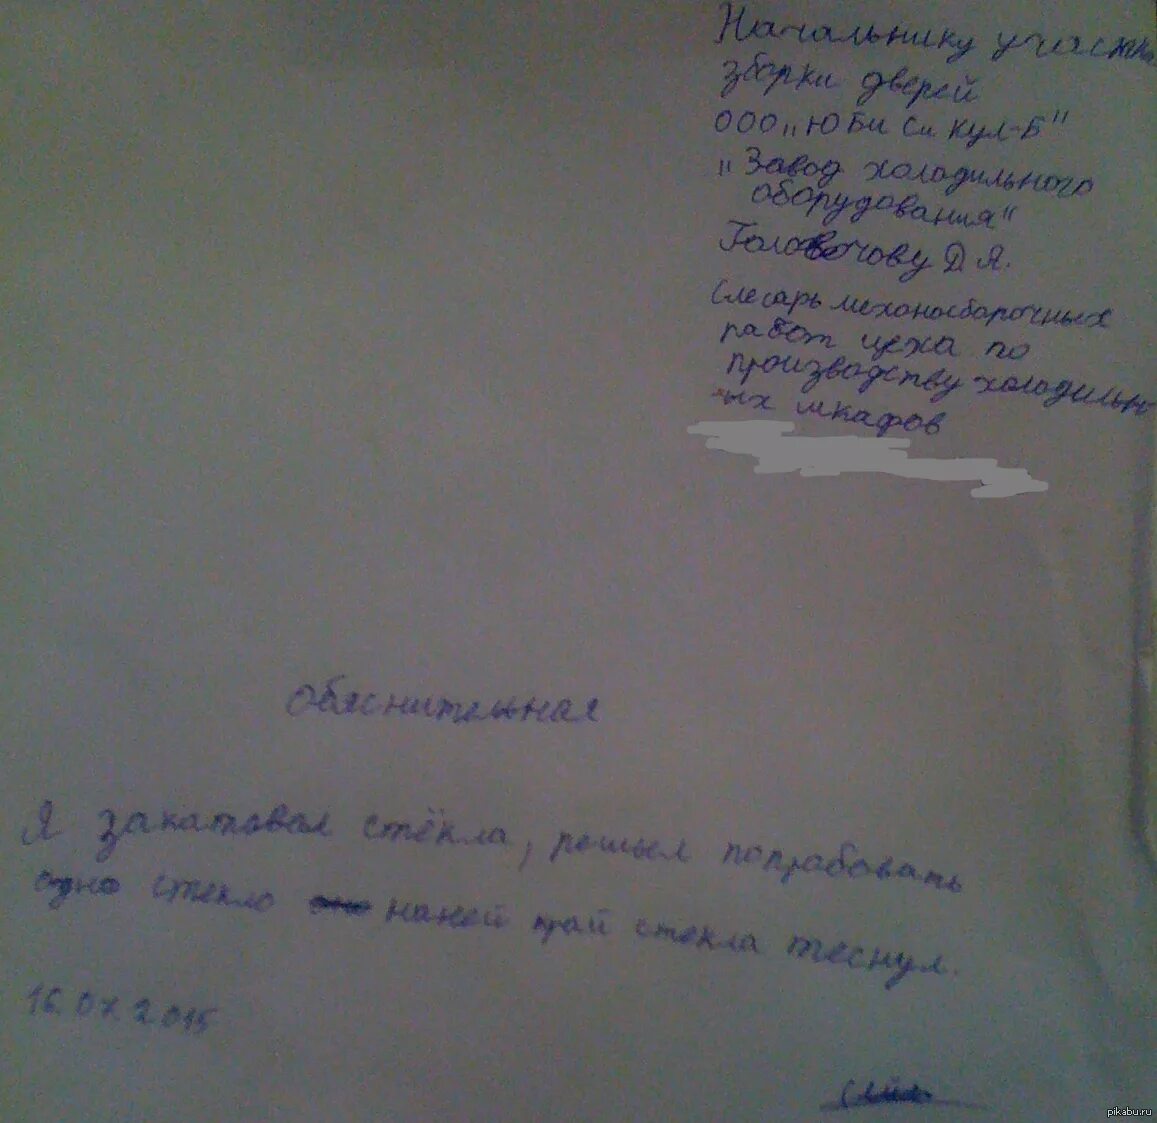 Начальнику участка
зборки дверей
ООО „Ю Би Си кул-Б"
„Завод холодильного
оборудования"
Д Я.
Слесарь механосборочных
работ цеха по
производству холодильн
ых шкафов
Обяснительная
Я закатовал стёкла, решыл попрабовать
одно стекло наней край стекла теснул.
16 2015
pikabu.ru